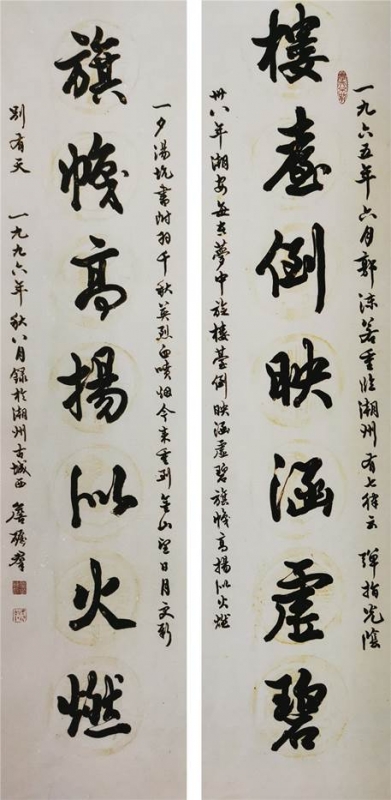 一九六五年六月郭沫若重臨潮州有七律云 彈指光陰
樓臺倒映涵虛碧
卅八年潮安每在夢中旋樓臺倒映涵虛碧旗幟高揚似火燃
一夕湯坑書附羽千秋英烈血噴烟今來重到金山望日月更新
旗幟高揚似火燃
別有天 一九九六年秋八月録於潮州古城西